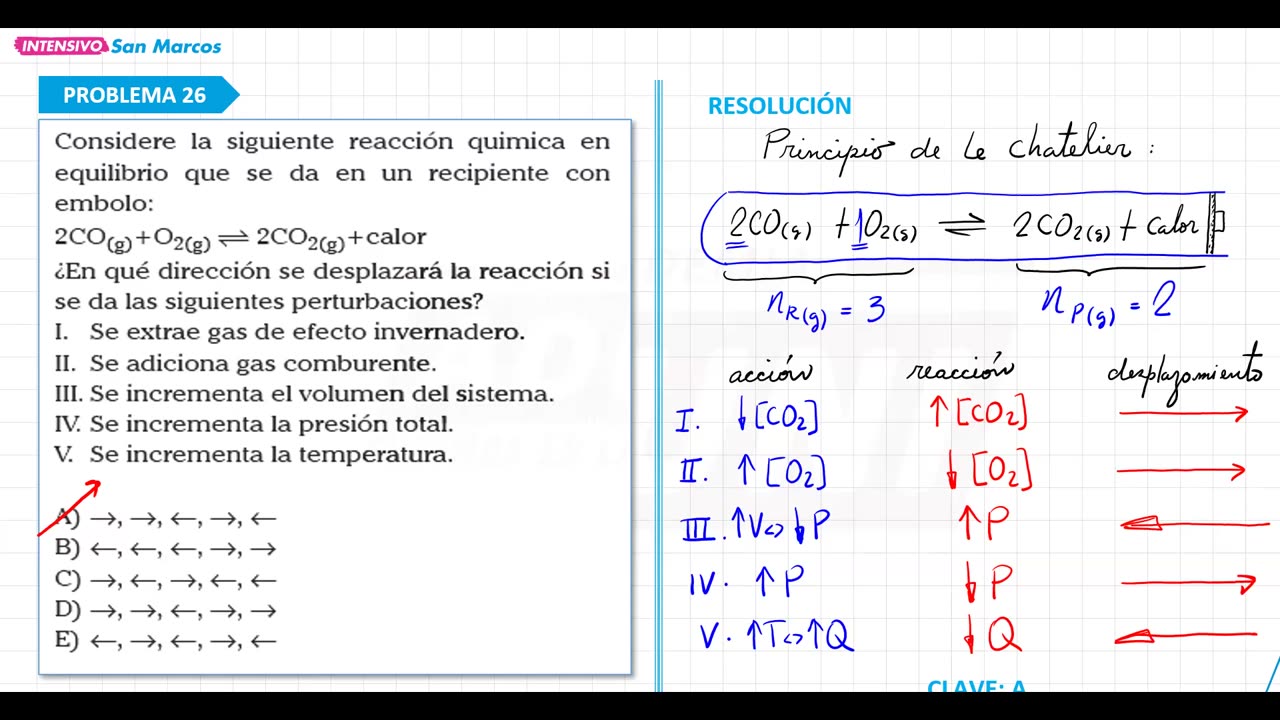 INTENSIVO San Marcos
PROBLEMA 26
Considere la siguiente reacción quimica en
equilibrio que se da en un recipiente con
embolo:
2CO(g)+O2(g) ⇌ 2CO2(g)+calor
¿En qué dirección se desplazará la reacción si
se da las siguientes perturbaciones?
I. Se extrae gas de efecto invernadero.
II. Se adiciona gas comburente.
III. Se incrementa el volumen del sistema.
IV. Se incrementa la presión total.
V. Se incrementa la temperatura.
A) →, →, ←, →, ←
B) ←, ←, ←, →, →
C) →, ←, →, ←, ←
D) →, →, ←, →, →
E) ←, →, ←, →, ←
RESOLUCIÓN
Principio de Le Chatelier :
2CO(g) + 1O2(g) ⇌ 2CO2(g) + Calor
nR(g) = 3 nP(g) = 2
acción reacción desplazamiento
I. ↓[CO2] ↑[CO2] →
II. ↑[O2] ↓[O2] →
III. ↑V<>↓P ↑P ←
IV. ↑P ↓P →
V. ↑T<>↑Q ↓Q ←
CLAVE: A